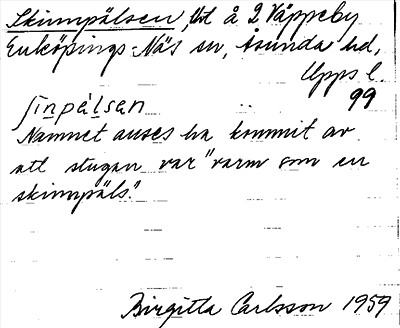 Skinnpälsen, tst å 2 Väppeby
Enköpings-Näs sn, Åsunda hd,
Upps l.
99
ʃinpälsan
Namnet anses ha kommit av
att stugan var "varm som en
skinnpäls".
Birgitta Carlsson 1959